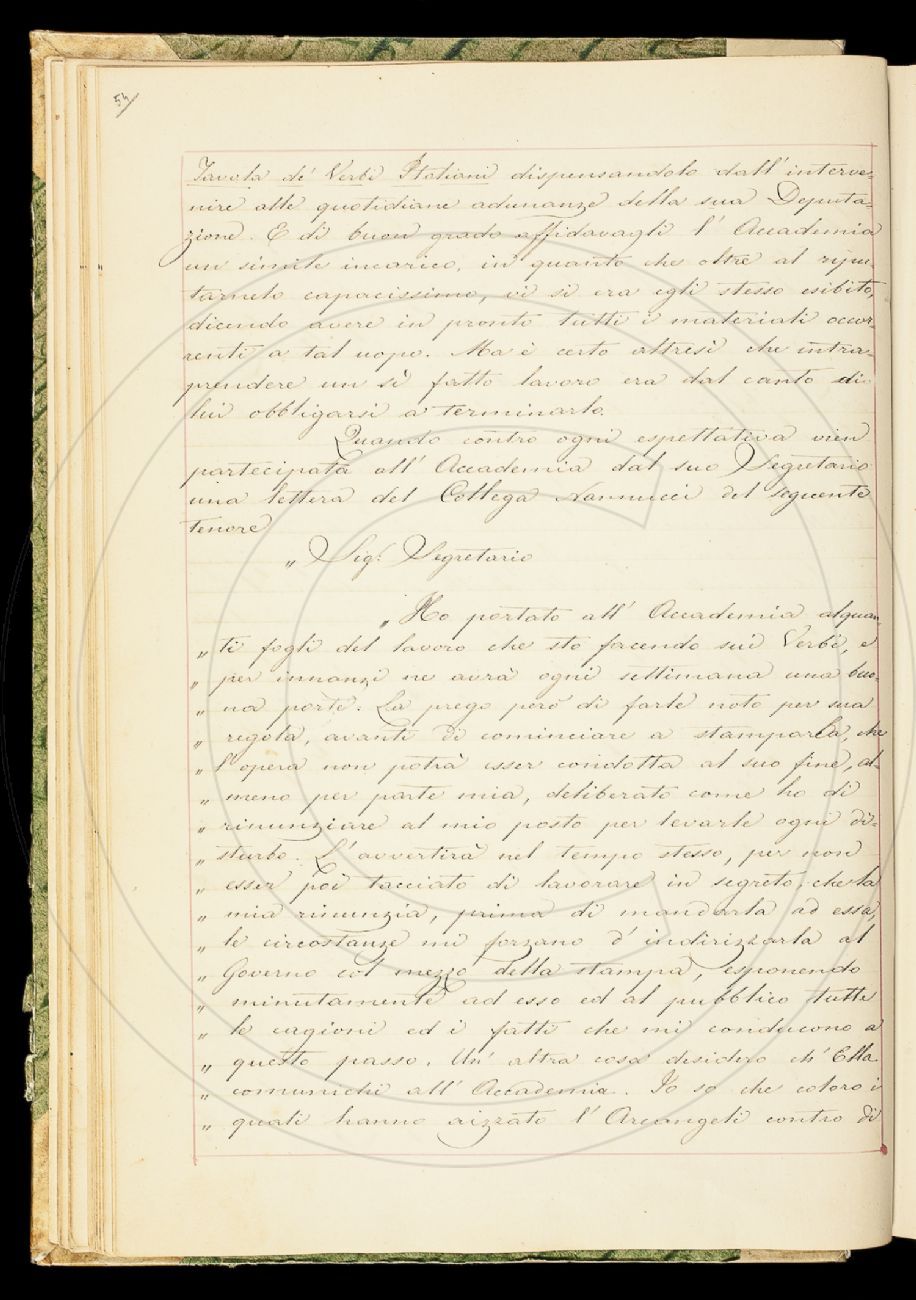 54
Tavola de' Verbi Italiani dispensandolo dall' interve=
nire alle quotidiane adunanze della sua Deputa=
zione. E di buon grado affidavagli l' Accademia
un simile incarico, in quanto che oltre al ripu=
tarnelo capacissimo, vi si era egli stesso esibito,
dicendo avere in pronto tutti i materiali occor=
renti a tal uopo. Ma è certo altresì che intra=
prendere un sì fatto lavoro era dal canto di
lui obbligarsi a terminarlo.
Quando contro ogni espettativa vien
partecipata all' Accademia dal suo Segretario
una lettera del Collega Nannucci del seguente
tenore
„ Sig.r Segretario
„ Ho portato all' Accademia alquan=
„ ti fogli del lavoro che sto facendo sui Verbi, e
„ per innanzi ne avrà ogni settimana una buo=
„ na parte. La prego però di farle noto per sua
„ regola, avanti di cominciare a stamparla, che
„ l'opera non potrà esser condotta al suo fine, al=
„ meno per parte mia, deliberato come ho di
„ rinunziare al mio posto per levarle ogni di=
„ sturbo. L' avvertirà nel tempo stesso, per non
„ esser poi tacciato di lavorare in segreto, che la
„ mia rinunzia, prima di mandarla ad essa,
„ le circostanze mi forzano d' indirizzarla al
„ Governo col mezzo della stampa, esponendo
„ minutamente ad esso ed al pubblico tutte
„ le cagioni ed i fatti che mi conducono a
„ questo passo. Un' altra cosa desidero ch' Ella
„ comunichi all' Accademia. Io so che coloro i
„ quali hanno aizzato l' Arcangeli contro di